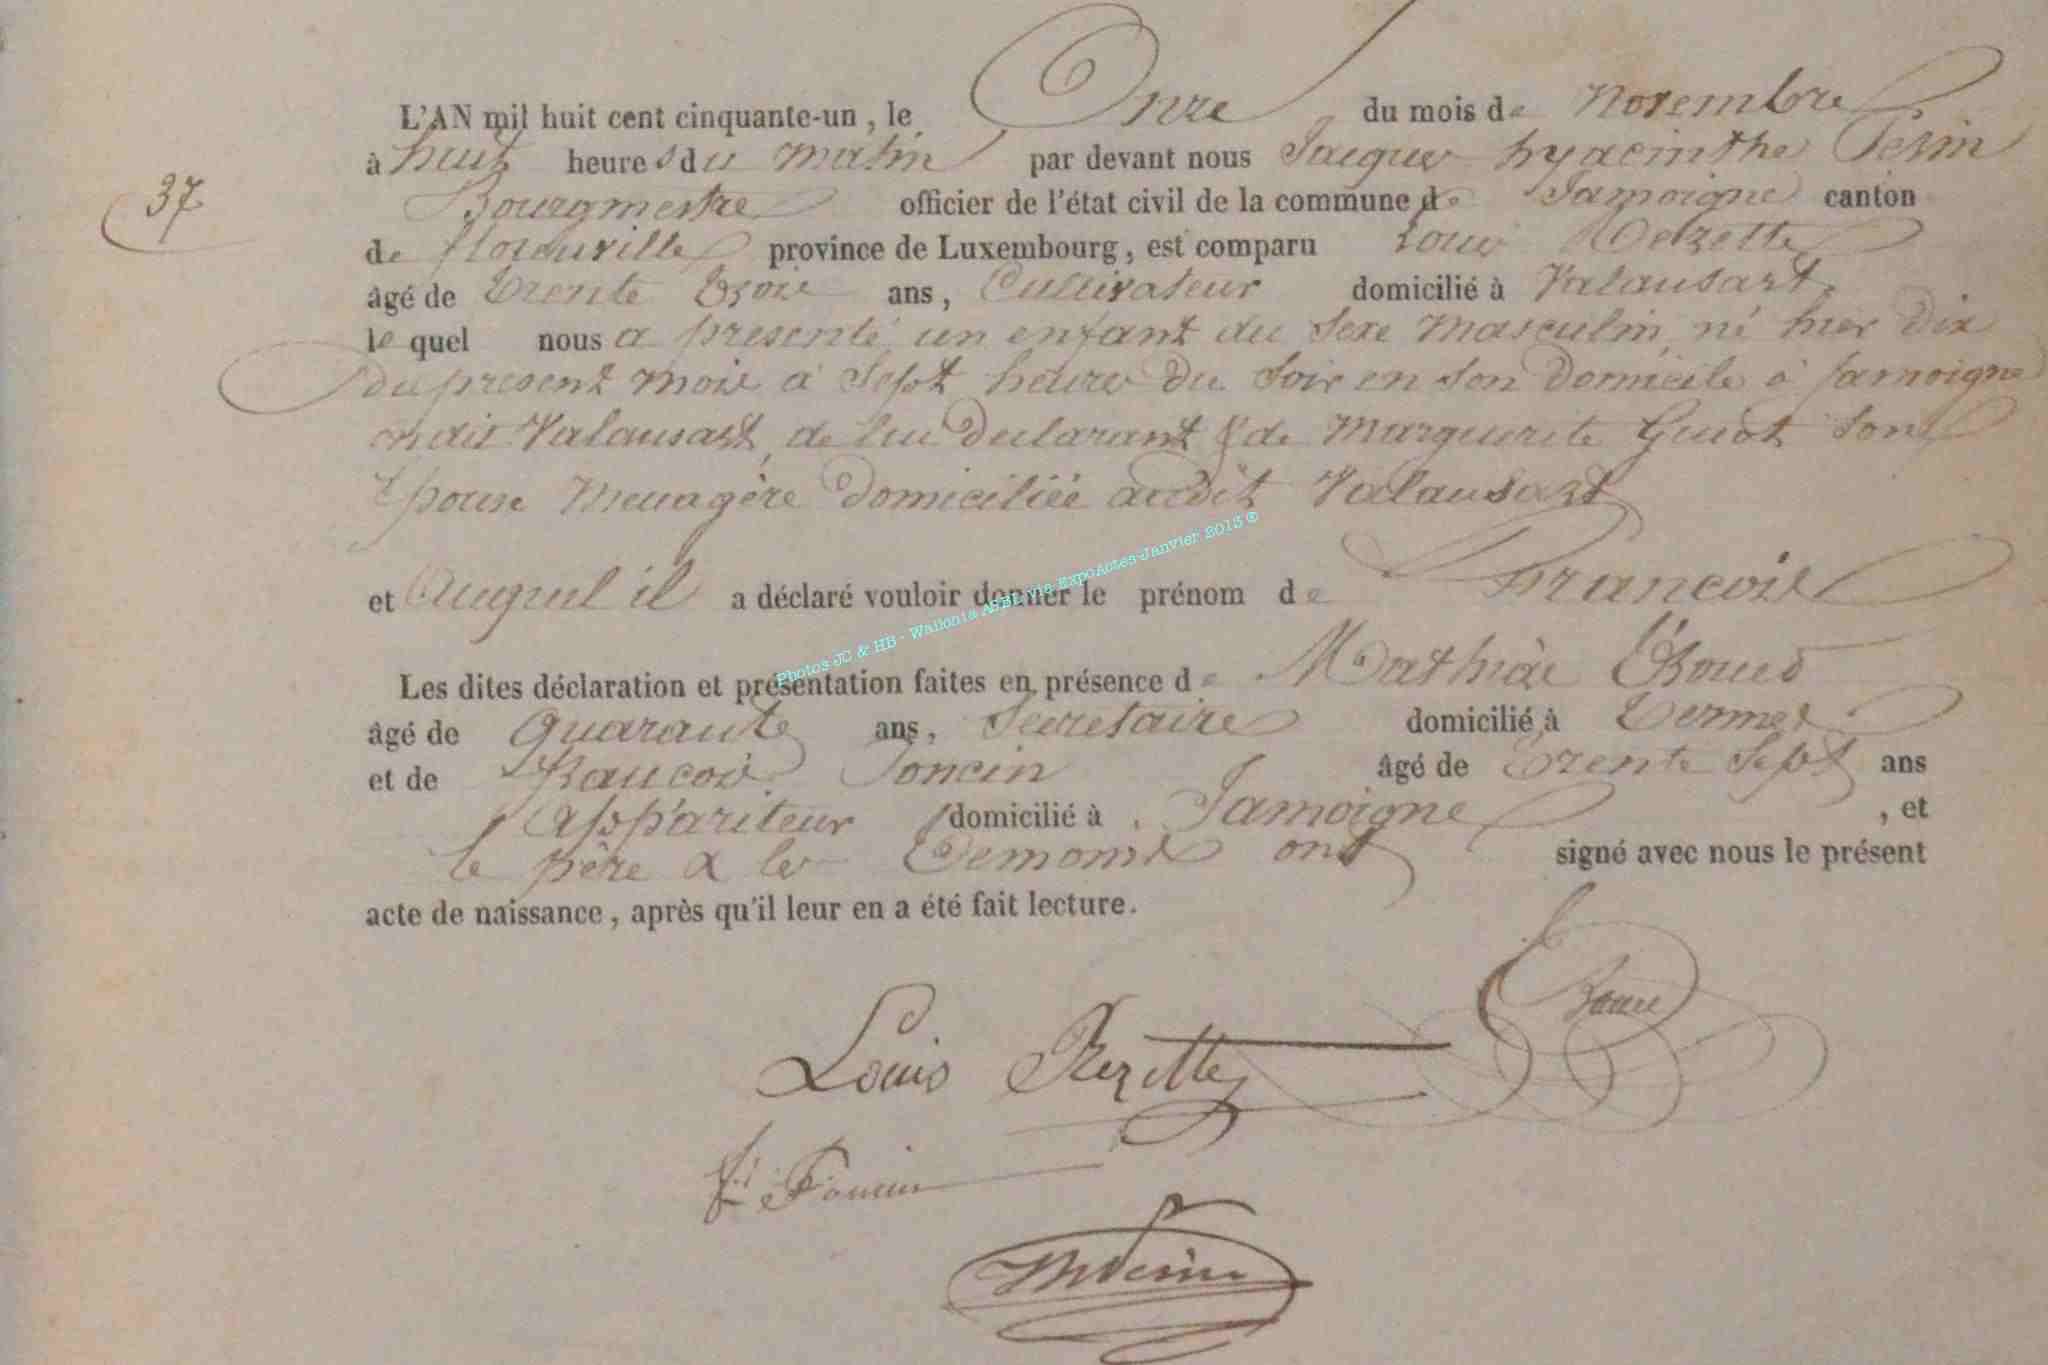 L'AN mil huit cent cinquante-un, le Onze du mois de Novembre
à huit heures du matin par devant nous Jacques hyacinthe Perin
37
Bourgmestre officier de l'état civil de la commune de Jamoigne canton
de florenville province de Luxembourg, est comparu Louis Rezette
âgé de trente trois ans, Cultivateur domicilié à Valansart
lequel nous a presenté un enfant du sexe Masculin, né hier dix
du present mois à Sept heures du soir en son domicile à Jamoigne
audit Valansart, de lui declarant & de Marguerite Guiot son
Epouse Menagère domiciliée audit Valansart
et Auquel il a déclaré vouloir donner le prénom de François
Photos JC & HB - Wallonia ASBL via ExpoActes-Janvier 2013 ®
Les dites déclaration et présentation faites en présence de Mathieu
âgé de quarante ans, Secretaire domicilié à Termes
et de François Poncin âgé de trente Sept ans
Appariteur domicilié à Jamoigne, et
le père & les temoins ont signé avec nous le présent
acte de naissance, après qu'il leur en a été fait lecture.
Louis Rezette
Poncin